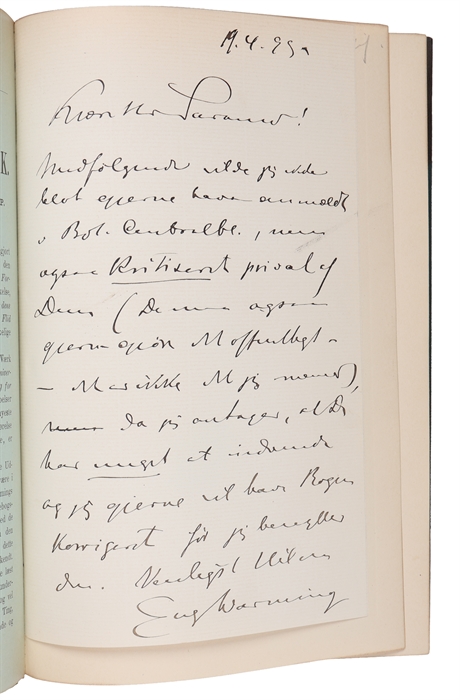 19.4.95
Kære Hr Sarauw!
Medfølgende vilde jeg ikke
blot gjerne have anmeldt
i Bot. Centralbl., men
ogsaa kritiseret privat af
Dem (De maa ogsaa
gjerne gjøre det offentligt -
- det er ikke det jeg mener),
da jeg antager, at De
har meget at indvende
og jeg gjerne vil have Bogen
korrigeret før jeg benytter
den. Venligst Hilsen
Eug Warming
K.